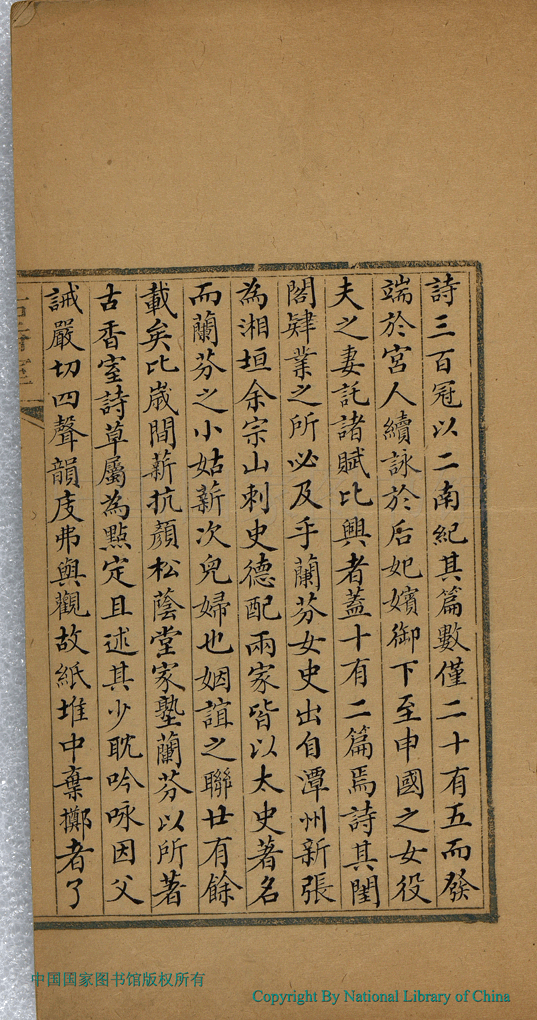 詩三百冠以二南紀其篇數僅二十有五而發
端於宮人續詠於后妃嬪御下至申國之女役
夫之妻託諸賦比興者蓋十有二篇焉詩其閨
閤肄業之所必及乎蘭芬女史出自潭州新張
為湘垣余宗山刺史德配兩家皆以太史著名
而蘭芬之小姑薪次兒婦也姻誼之聯廿有餘
載矣比歲間薪抗顏松蔭堂家塾蘭芬以所著
古香室詩草屬為點定且述其少耽吟咏因父
誡嚴切四聲韻度弗與觀故紙堆中棄擲者了
中国国家图书馆版权所有
Copyright By National Library of China